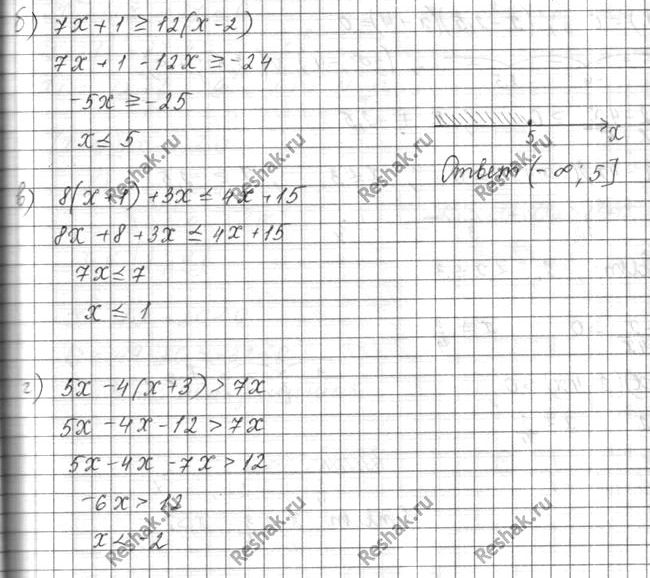 б) 7x + 1 ≥ 12(x - 2)
7x + 1 - 12x ≥ -24
-5x ≥ -25
x ≤ 5
5 x
Ответ (-∞; 5]
в) 8(x+1) + 3x ≤ 4x + 15
8x + 8 + 3x ≤ 4x + 15
7x ≤ 7
x ≤ 1
г) 5x - 4(x+3) > 7x
5x - 4x - 12 > 7x
5x - 4x - 7x > 12
-6x > 12
x < -2
Reshak.ru Reshak.ru Reshak.ru Reshak.ru
Reshak.ru Reshak.ru Reshak.ru Reshak.ru